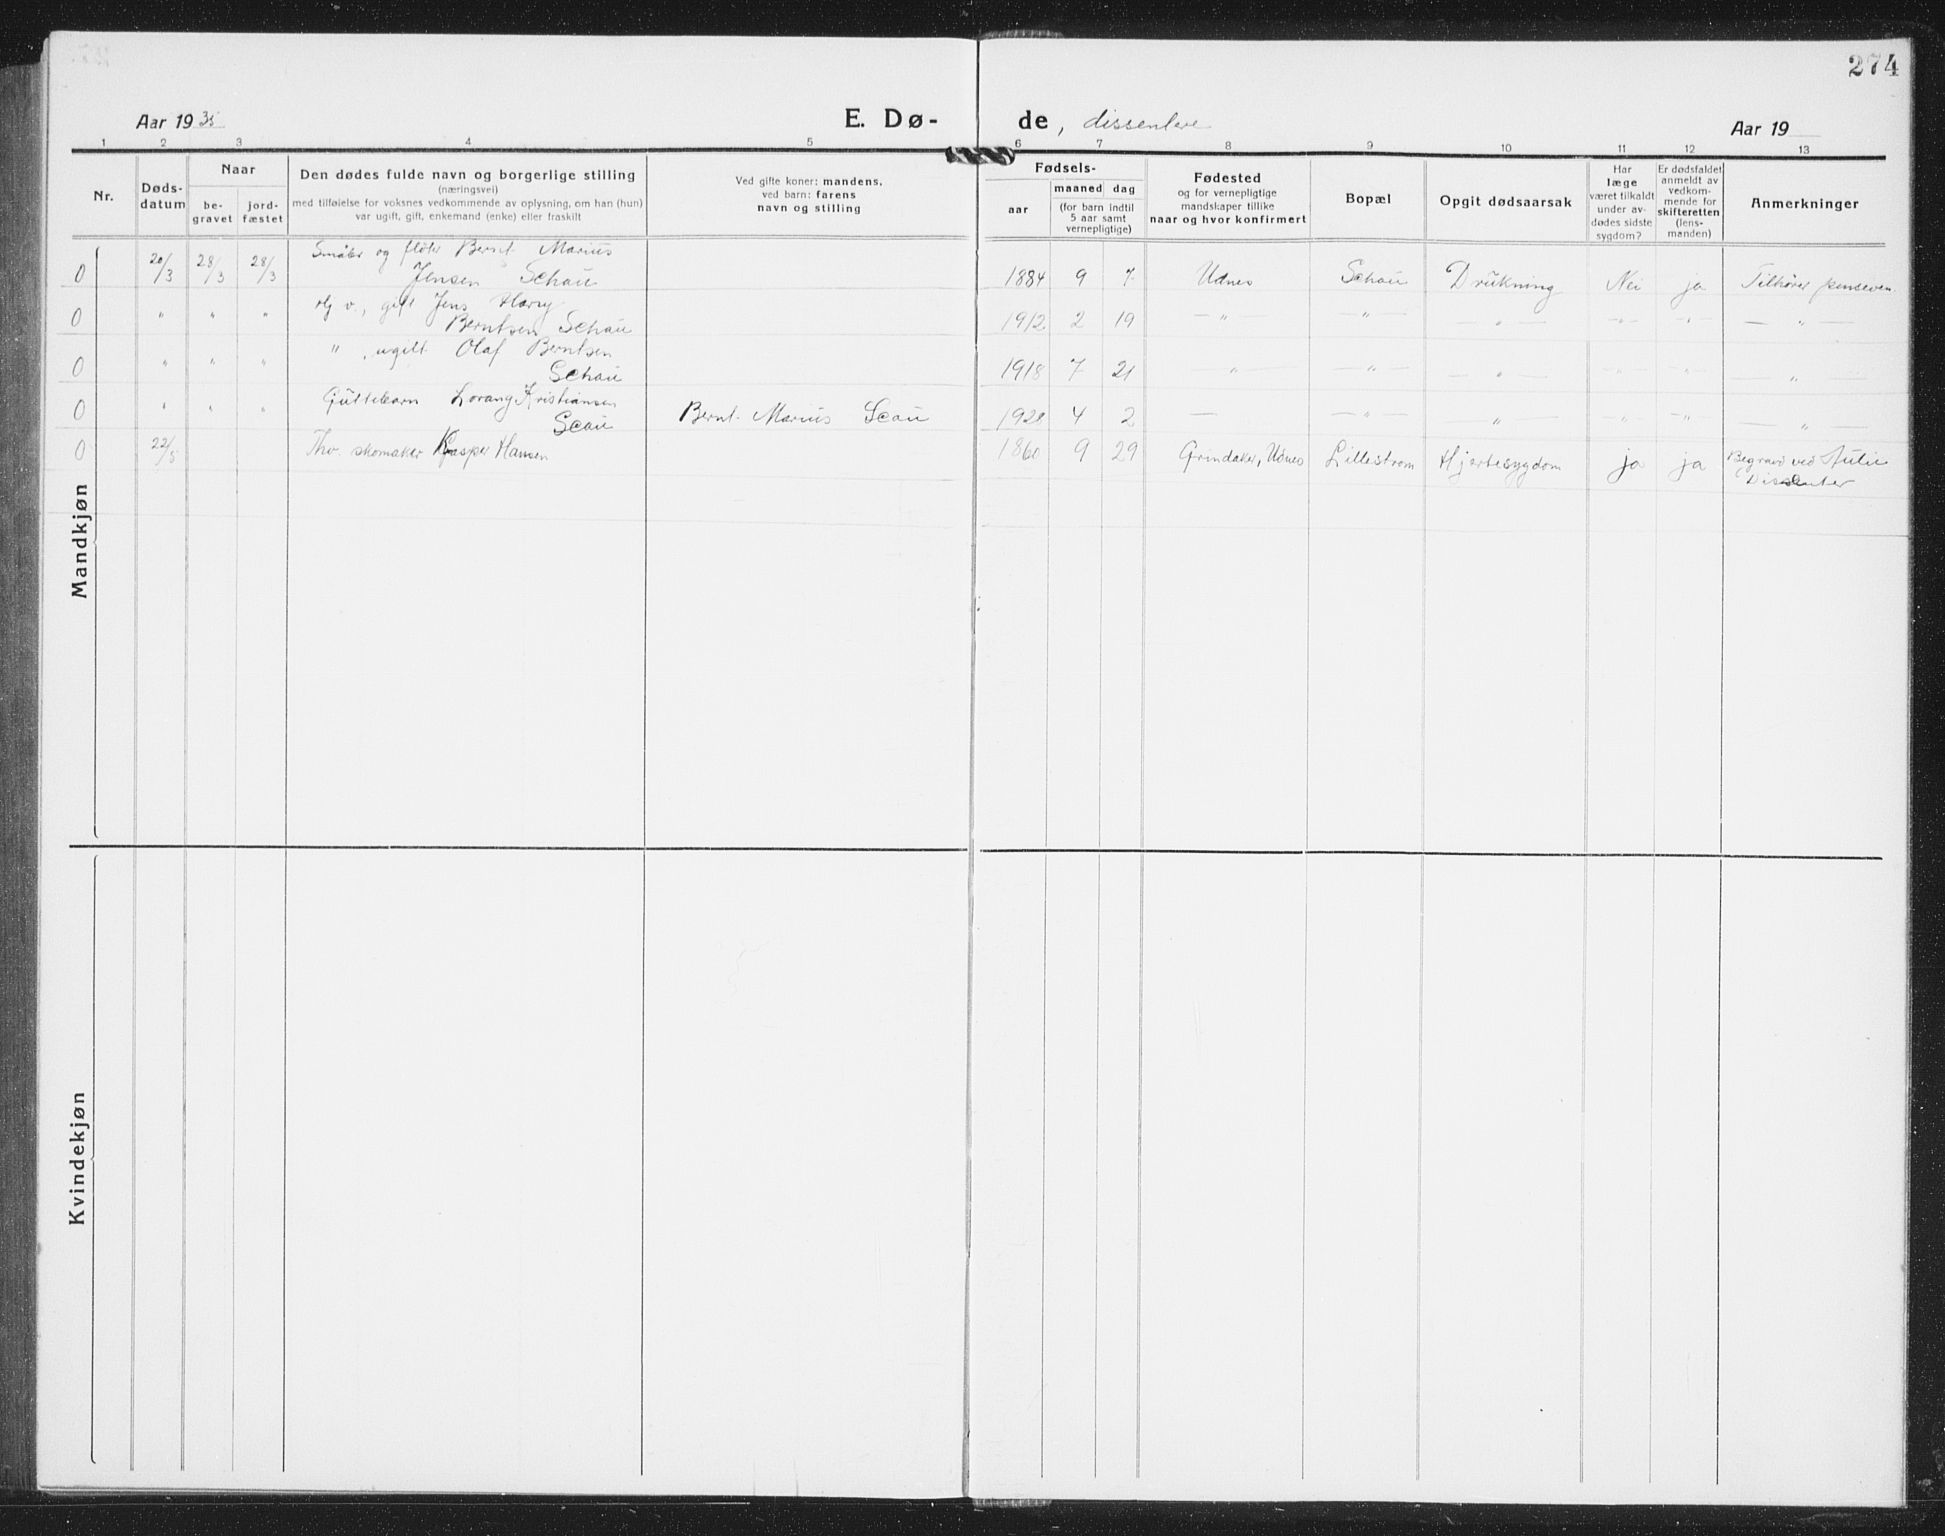 274
Aar 1935 E. Dø- de, dissentere Aar 19
1 2 3 4 5 6 7 8 9 10 11 12 13
Nr.
Døds-
datum
Naar
be-
gravet
jord-
fæstet
Den dødes fulde navn og borgerlige stilling
(næringsvei)
med tilføielse for voksnes vedkommende av oplysning, om han (hun)
var ugift, gift, enkemand (enke) eller fraskilt
Ved gifte koner: mandens,
ved barn: farens
navn og stilling
Fødsels-
aar
maaned dag
(for barn indtil
5 aar samt
vernepligtige)
Fødested
og for vernepligtige
mandskaper tillike
naar og hvor konfirmert
Bopæl
Opgit dødsaarsak
Har
læge
været tilkaldt
under av-
dødes sidste
sygdom?
Er dødsfaldet
anmeldt av
vedkom-
mende for
skifteretten
(lens-
manden)
Anmerkninger
Mandkjøn
Småbr og fløter Bernt Marius
0 20/3 28/3 28/3 Jensen Schau 1884 9 7 Udnes Schau Drukning Nei ja Tilhører pinseven
gift Jens Harry
0 " " " Berntsen Schau 1912 2 19 — " — — " — — " — — " — — " — — " —
" , ugift Olaf Berntsen
0 " " " Schau 1918 7 21 " — " — — " — — " — — " — "
Guttebarn Lorang Kristiansen
0 " " " Scau Bernt Marius Scau 1928 4 2 — — " — " " — " — — " —
0 22/5 Thv. skomaker Kasper Hansen 1860 9 29 Grindaker, Udnes Lillestrøm Hjertesygdom ja ja Begravd ved Aulie
Dissenter
Kvindekjøn